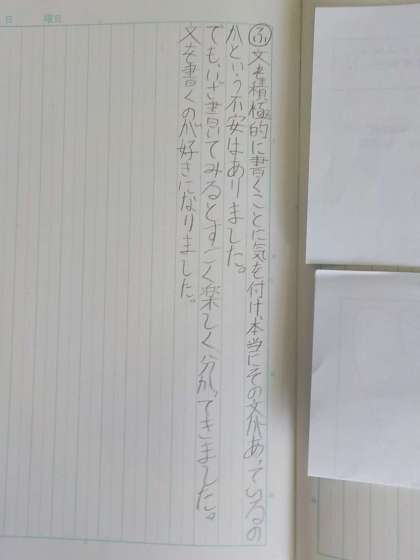 日 曜日
㋫文を積極的に書くことに気を付け、本当にその文があっているの
かという不安はありました。
でも、いざ書いてみるとすごく楽しく分かってきました。
文を書くのが好きになりました。